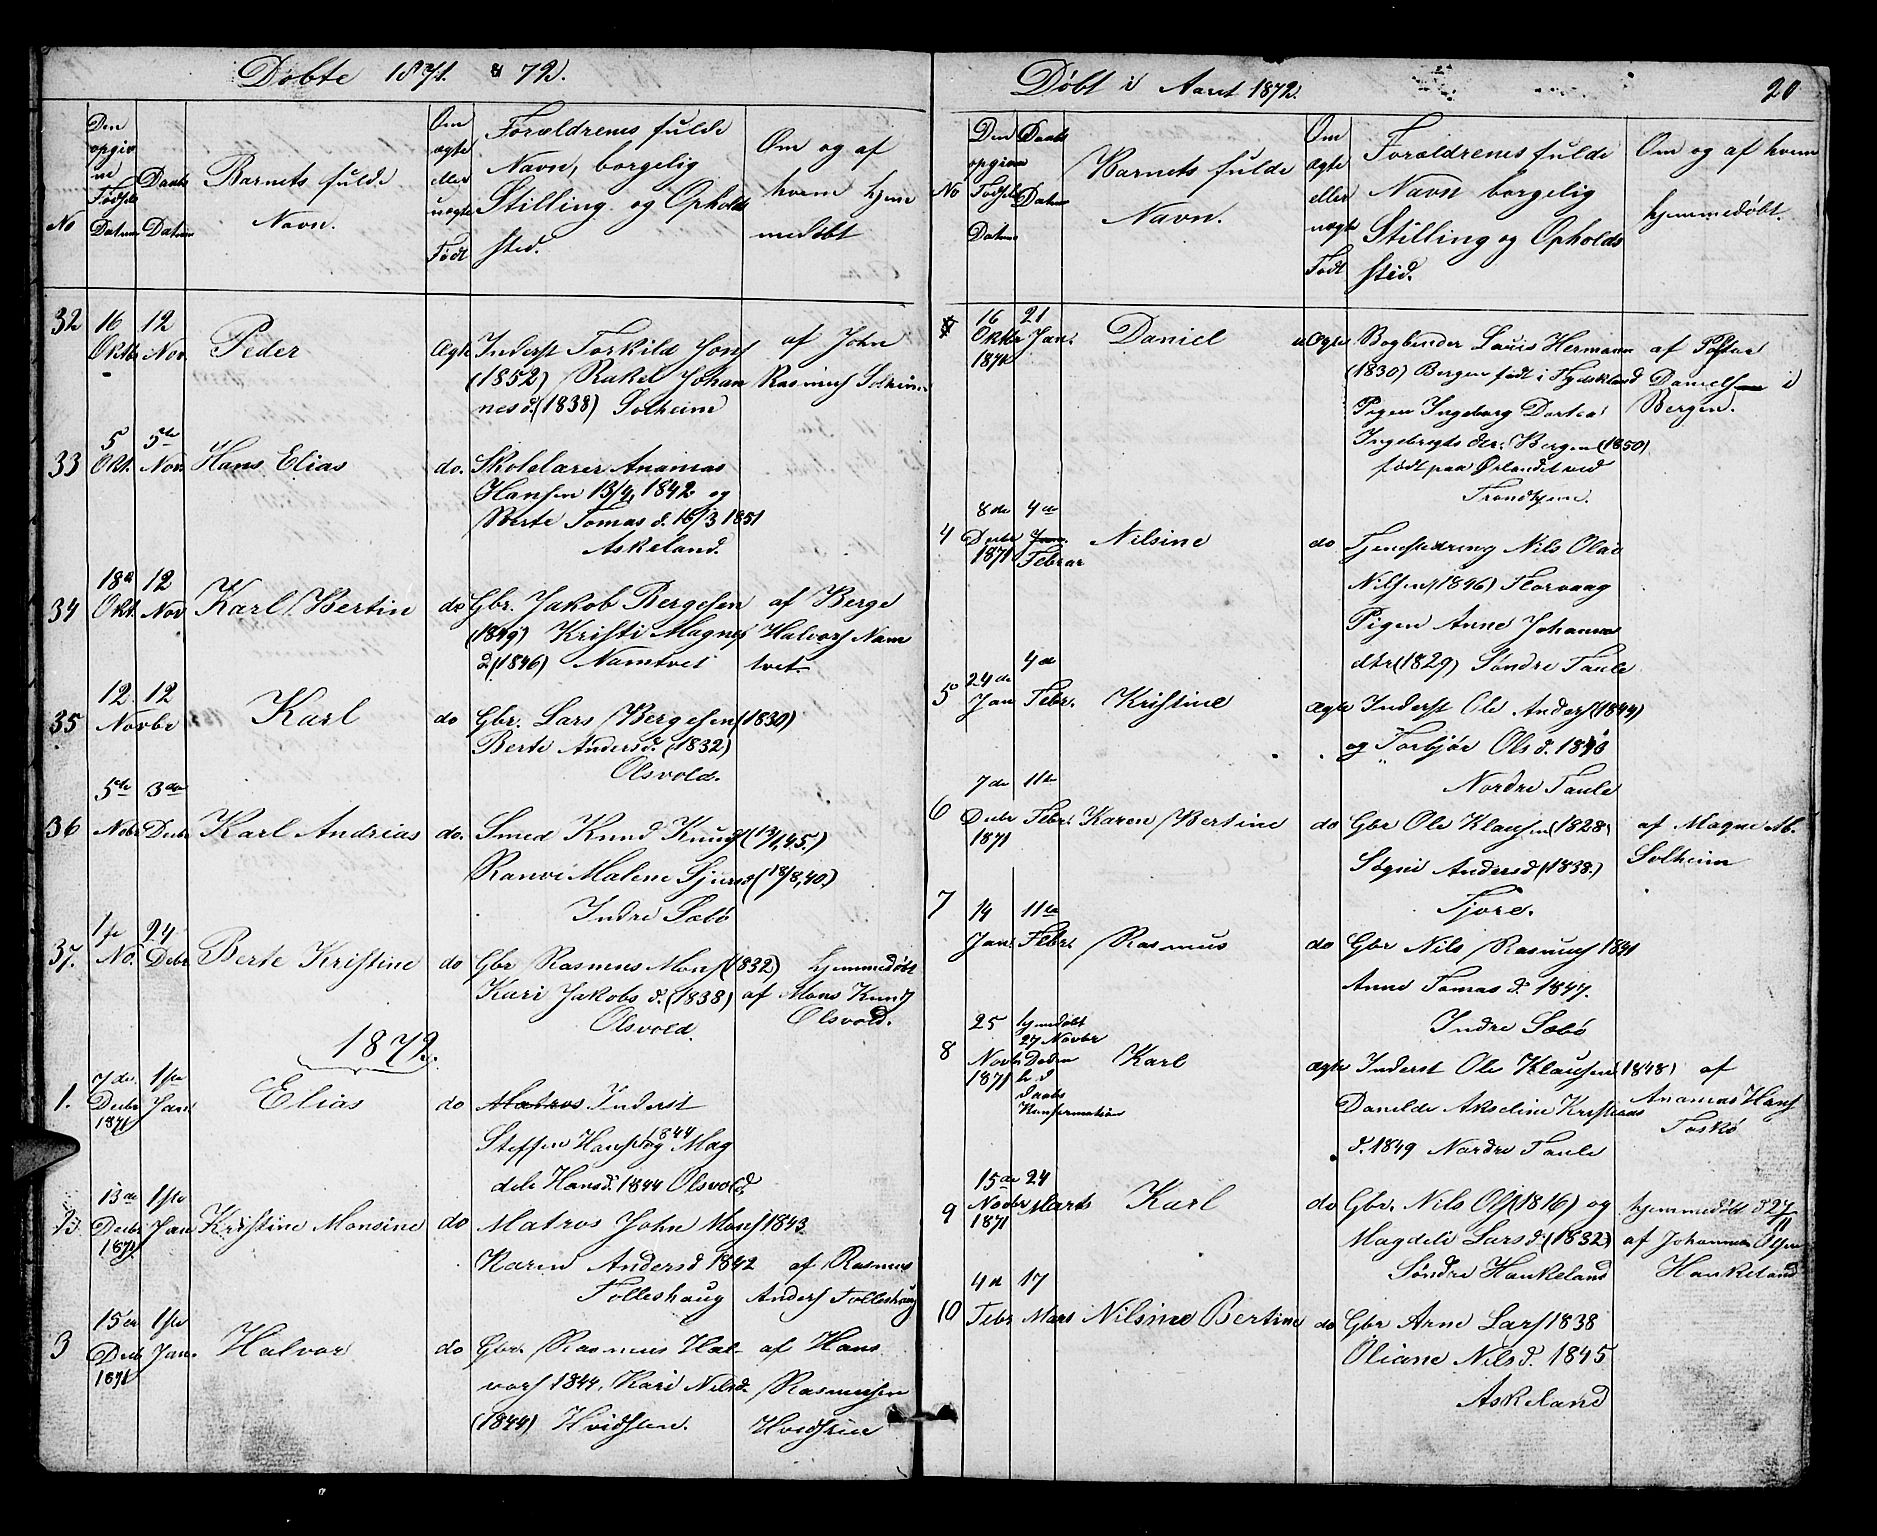 Døbte 1871 & 72.
No
Den opgivne Fødsels Datum
Daabs Datum
Barnets fulde Navn.
Om ægte eller uægte Født
Forældrenes fulde
Navn, borgelig
Stilling og Opholds
sted.
Om og af
hvem hjem
medøbt
32 16 Oktbr 12 Nov. Peder Ægte Inderst Torkild Jons
(1852) Rakel Johan
nesd. (1838) Solheim
af John
Rasmus Solheim
33 5 Okt. 5te Nov. Hans Elias do. Skolelærer Ananias
Hansen 13/4 1842 og
Berte Tomas d. 16/3 1851
Askeland.
34 18de Okt. 12 Nov Karl Bertin do Gbr. Jakob Bergesen
(1849) Kristi Magnes
d (1846) Namtvet
af Berge
Halvors Nam
tvet
35 12 12 Novbr Karl do Gbr. Lars Bergesen (1830)
Berte Andersd. (1832)
Olsvold.
36 5te Nobr 3de Debr Karl Andreas do. Smed Knud Knuds (13/1,45.)
Ranvei Malene Sjursd (18/8,40.)
Indre Sæbø
37. 1ste No. 24 Debr Berte Kristine do Gbr Rasmus Mons (1832)
Kari Jakobs d. (1838)
Olsvold.
hjemmedøbt
af Mons Knuds
Olsvold.
1872.
1. 7de Decbr 1871 1ste Jan Elias do Matros Inderst
Steffen Hans 1844 og Mag
dele Hansd. 1844 Olsvold.
2. 13de Decbr 1871 1ste Jan Kristine Monsine do Matros John Mons 1843
Karen Andersd 1842
Tolleshaug
af Rasmus
Anders Tolleshaug
3 15de Decb 1871 1ste Jan. Halvor do Gbr. Rasmus Hal-
vors 1844, Kari Nilsd.
(1844) Hvidsten.
af Hans
Rasmussen
Hvidsten
Døbt i Aaret 1872.
20
No
Den opgivne Fødsels Datum
Daabs Datum
Barnets fulde
Navn.
Om ægte eller uægte Født
Forældrenes fulde
Navn borgelig
Stilling og Opholds
sted.
Om og af hvem
hjemmedøbt.
16 Oktbr 1871 21 Jan. Daniel uægte Bogbinder Louis Hermann
(1830) Bergen født i Tydskland
Pigen Ingeborg Dortea
Ingebregts dtr. Bergen (1850)
født paa Ørlandet ved
Trondhjem.
af Pastor
Danielsen i
Bergen.
4 8de Decbr 1871 4de Jan. Februar Nilsine do Tjenestedreng Nils Olai
Nilsen (1846) Florvaag
Pigen Anne Johannes
dtr (1829) Søndre Taule
5 24de Jan 4de Febr. Kristine ægte Inderst Ole Anders (1844)
og Torbjør Ols d. 1840
Nordre Taule
6 7de Decbr 1871 11te Febr. Karen Bertine do Gbr Ole Klausen (1828)
Signi Andersd. (1838.)
Tjore.
af Mogne Mb.
Solheim
7 14 Jan. 11te Febr. Rasmus do Gbr Nils Rasmus 1841
Anne Tomas d. 1847.
Indre Sæbø
8 25 Novbr 1871 hjemdøbt
27 Novbr
Daabs
Konfermation
Karl ægte Inderst Ole Klausen (1848)
Danilde Akseline Kristians
d. 1849 Nordre Taule
af
Ananias Hans
Foskø
9 15de Novbr 1871 24 Marts Karl do Gbr. Nils Ols (1816) og
Magdeli Larsd. (1832)
Søndre Haukeland
hjemmedøbt d 27/11
af Johannes Olsen
Haukeland
10 4de Febr 17 Mars Nilsine Bertine do Gbr Arne Lars 1838
Oliane Nilsd. 1845
Askeland